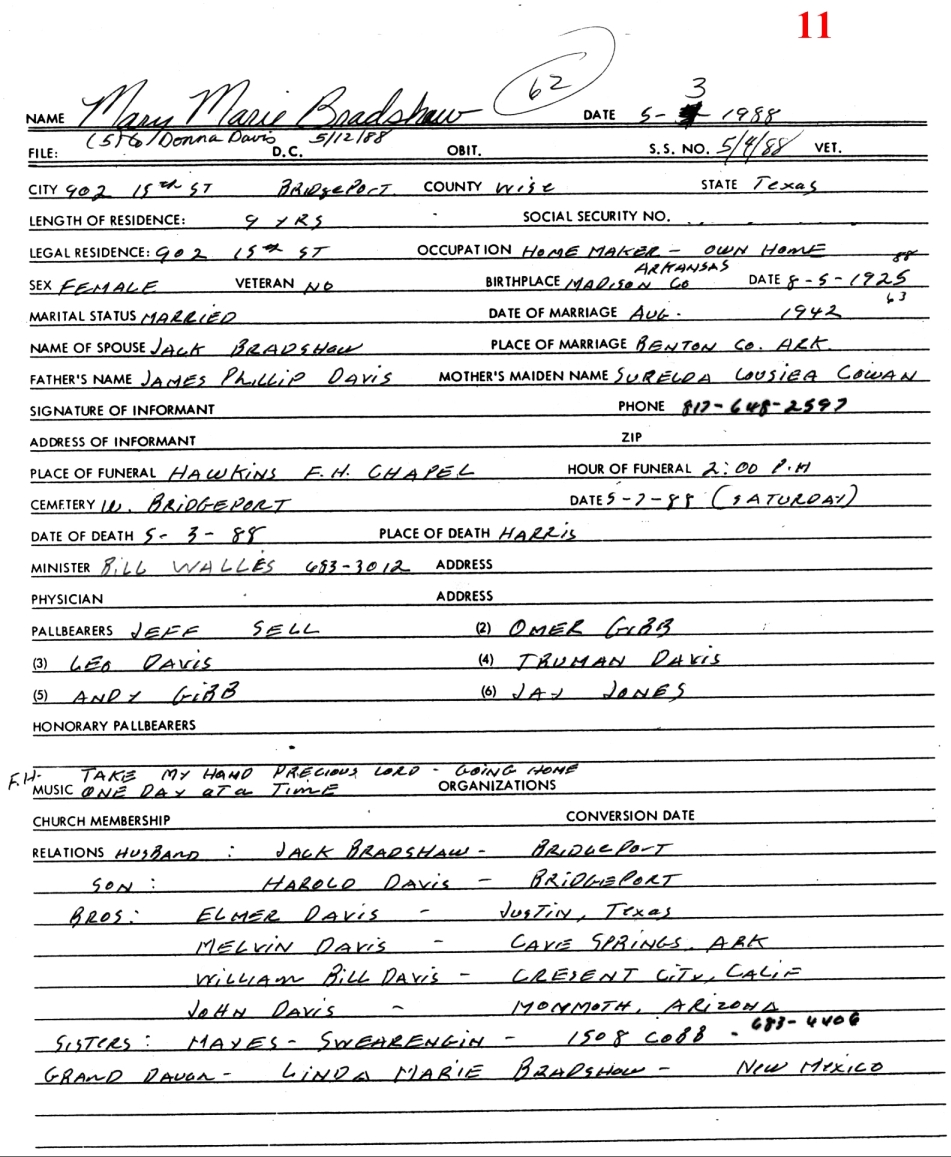 11
62
3
NAME Mary Marie Bradshaw DATE 5- -1988
(5) (6) Donna Davis 5/12/88
FILE: D.C. OBIT. S.S. NO. 5/4/88 VET.
CITY 902 15th ST BRIDGEPORT COUNTY WISE STATE Texas
LENGTH OF RESIDENCE: 9 YRS SOCIAL SECURITY NO.
LEGAL RESIDENCE: 902 15th ST OCCUPATION HOME MAKER - OWN HOME
ARKANSAS 88
SEX FEMALE VETERAN NO BIRTHPLACE MADISON CO DATE 8-5-1925
63
MARITAL STATUS MARRIED DATE OF MARRIAGE AUG. 1942
NAME OF SPOUSE JACK BRADSHAW PLACE OF MARRIAGE BENTON CO. ARK.
FATHER'S NAME JAMES PHILLIP DAVIS MOTHER'S MAIDEN NAME SURELDA LOUSIEA COWAN
SIGNATURE OF INFORMANT PHONE 817-648-2597
ADDRESS OF INFORMANT ZIP
PLACE OF FUNERAL HAWKINS F.H. CHAPEL HOUR OF FUNERAL 2:00 P.M
CEMETERY W. BRIDGEPORT DATE 5-7-88 (SATURDAY)
DATE OF DEATH 5-3-88 PLACE OF DEATH HARRIS
MINISTER BILL WALLES 683-3012 ADDRESS
PHYSICIAN ADDRESS
PALLBEARERS JEFF SELL (2) OMER GIBB
(3) LEO DAVIS (4) TRUMAN DAVIS
(5) ANDY GIBB (6) JAY JONES
HONORARY PALLBEARERS
F.H. TAKE MY HAND PRECIOUS LORD - GOING HOME
MUSIC ONE DAY at a TIME ORGANIZATIONS
CHURCH MEMBERSHIP CONVERSION DATE
RELATIONS HUSBAND : JACK BRADSHAW - BRIDGEPORT
SON : HAROLD DAVIS - BRIDGEPORT
BROS: ELMER DAVIS - JUSTIN, Texas
MELVIN DAVIS - CAVE SPRINGS, ARK
WILLIAM BILL DAVIS - CRESENT CITY, CALIF
JOHN DAVIS - MONMOTH, ARIZONA
SISTERS : MAYES - SWEARENGIN - 1508 COBB - 683-4406
GRAND DAUGH - LINDA MARIE BRADSHAW - NEW MEXICO